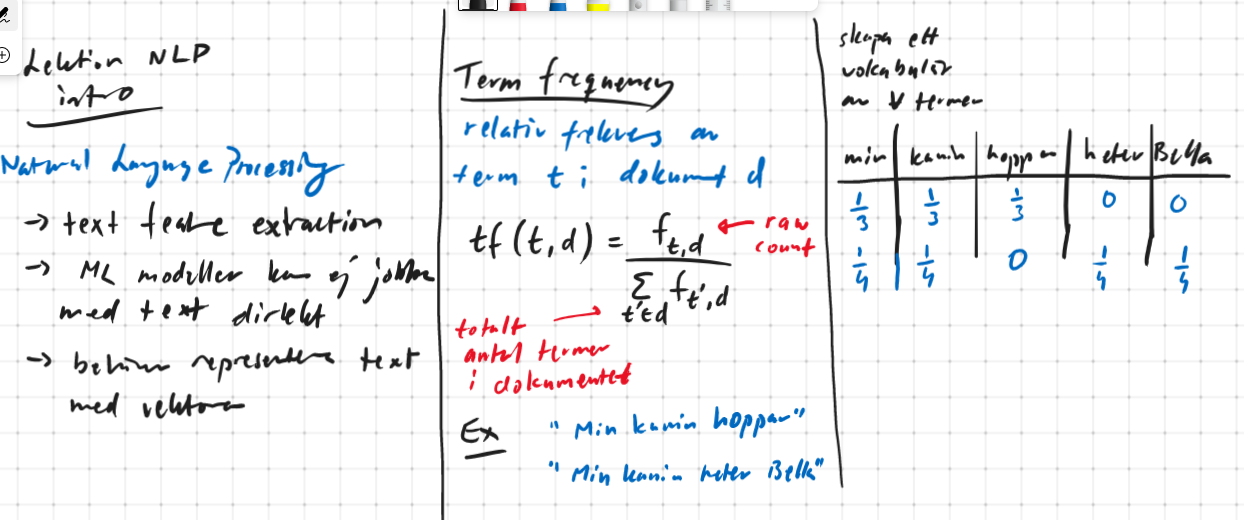 Lektion NLP
intro
Natural Language Processing
→ text feature extraction
→ ML modeller kan ej jobba
med text direkt
→ behöver representera text
med vektorer
Term frequency
relativ frekvens av
term t i dokument d
tf(t,d) = f_{t,d} / Σ_{t'∈d} f_{t',d}
← raw
count
totalt →
antal termer
i dokumentet
Ex "Min kanin hoppar"
"Min kanin heter Bella"
skapa ett
vokabulär
av V termer
min kanin hoppar heter Bella
1/3 1/3 1/3 0 0
1/4 1/4 0 1/4 1/4